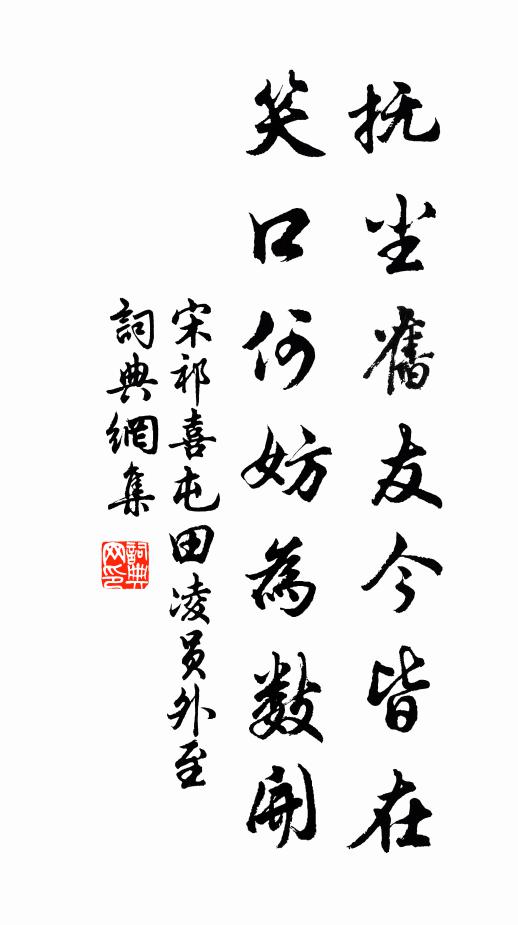 抚尘舊友今皆在
笑口何妨為数開
宋祁喜屯田凌员外至
詞典網集
詞典网印